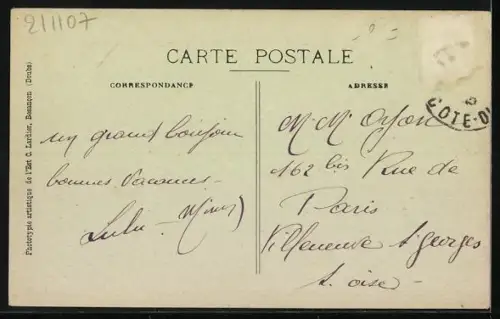 211107
CARTE POSTALE
CORRESPONDANCE
ADRESSE
COTE-D
un grand bonjour
bonnes vacances
Lulu - Mimi
M. M.
162 bis Rue de
Paris
Villeneuve St Georges
S. oise
Phototypie artistique de l'Est C. Lardier, Besançon (Doubs)